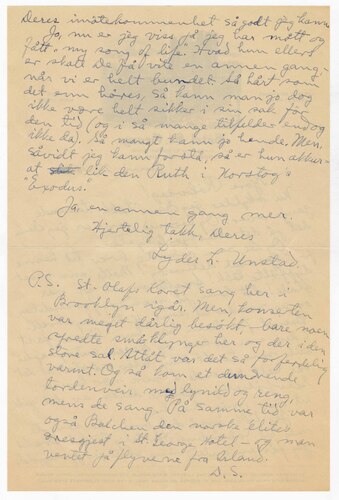 Deres imøtekommenhet så godt jeg kann.
Ja, nu er jeg viss på jeg har møtt og
fått "my song of life". Hvad hun ellers
er skall De få vite en annen gang,
når vi er helt bundet. Så hårt som
det enn høres, så kann man jo dog
ikke være helt sikker i sin sak før
den tid (og i så mange tilfelder endog
ikke da). Så mangt kann jo hende. Men,
såvidt jeg kann forstå, så er hun akkur-
at lik den Ruth i Horstog's
"Exodus."
Ja, en annen gang mer.
Hjertelig takk, Deres
Lyder L. Unstad.
P.S. St. Olafs Koret sang her i
Brooklyn igår. Men, konserten
var meget dårlig besøkt, bare noen
spredte småklynger her og der i den
store sal. Attåt var det så forferdelig
varmt. Og så kom et dundrende
tordenveir, med lynild og regn,
mens de sang. På samme tid var
også Balchen den norske Elites
æresgjest i St. George Hotel – og man
ventet på flyverne fra Irland.
D.S.